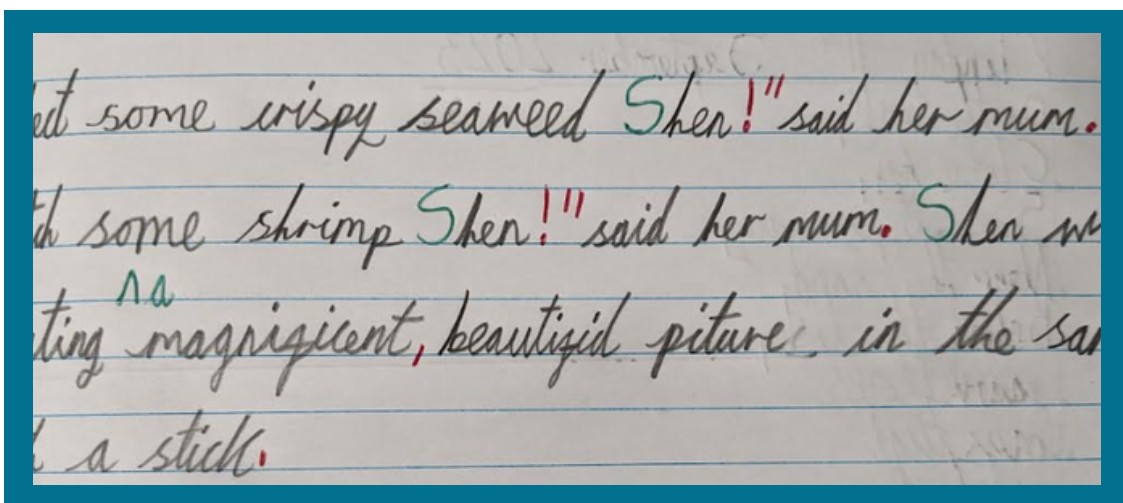 some crispy seaweed Shen!" said her mum.
some shrimp Shen!" said her mum. Shen
^a
ting magnigicent, beautigid piture in the sa
a stick.